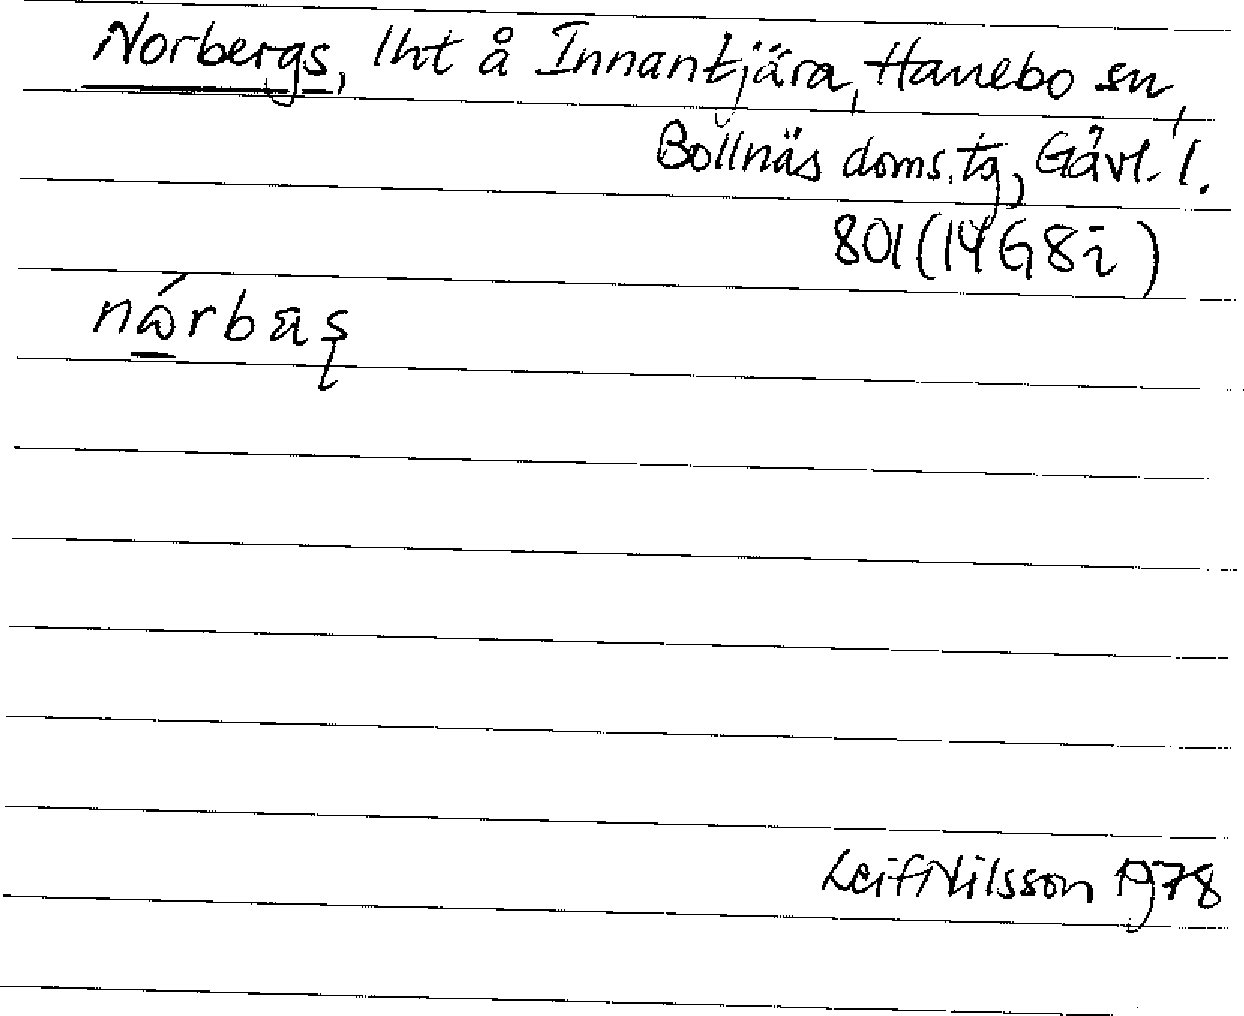 Norbergs, lht å Innantjära, Hanebo sn,
Bollnäs doms.tg, Gävl. l.
801 (14G8i)
nårbąş
Leif Nilsson 1978